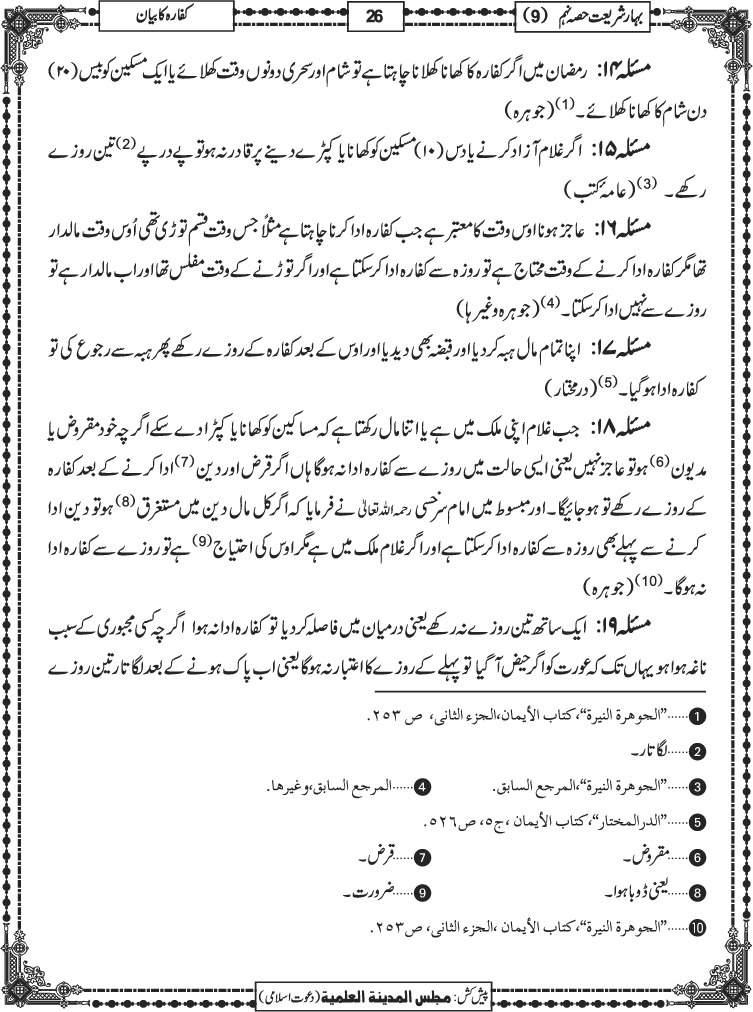 بہار شریعت حصہ نہم (9)
26
کفارہ کا بیان
مسئلہ ۱۴: رمضان میں اگر کفارہ کا کھانا کھلانا چاہتا ہے تو شام اور سحری دونوں وقت کھلائے یا ایک مسکین کو بیس (۲۰)
دن شام کا کھانا کھلائے۔(1) (جوہرہ)
مسئلہ ۱۵: اگر غلام آزاد کرنے یا دس (۱۰) مسکین کو کھانا یا کپڑے دینے پر قادر نہ ہو تو پے در پے(2) تین روزے
رکھے۔ (3) (عامۂ کتب)
مسئلہ ۱۶: عاجز ہونا اوس وقت کا معتبر ہے جب کفارہ ادا کرنا چاہتا ہے مثلاً جس وقت قسم توڑی تھی اُوس وقت مالدار
تھا مگر کفارہ ادا کرنے کے وقت محتاج ہے تو روزہ سے کفارہ ادا کر سکتا ہے اور اگر توڑنے کے وقت مفلس تھا اور اب مالدار ہے تو
روزے سے نہیں ادا کر سکتا۔(4) (جوہرہ وغیرہا)
مسئلہ ۱۷: اپنا تمام مال ہبہ کر دیا اور قبضہ بھی دیدیا اور اوس کے بعد کفارہ کے روزے رکھے پھر ہبہ سے رجوع کی تو
کفارہ ادا ہو گیا۔(5) (درمختار)
مسئلہ ۱۸: جب غلام اپنی ملک میں ہے یا اتنا مال رکھتا ہے کہ مساکین کو کھانا یا کپڑا دے سکے اگرچہ خود مقروض یا
مدیون(6) ہو تو عاجز نہیں یعنی ایسی حالت میں روزے سے کفارہ ادا نہ ہوگا ہاں اگر قرض اور دین(7) ادا کرنے کے بعد کفارہ
کے روزے رکھے تو ہو جائیگا۔ اور مبسوط میں امام سرخسی رحمہ اللہ تعالیٰ نے فرمایا کہ اگر کل مال دین میں مستغرق(8) ہو تو دین ادا
کرنے سے پہلے بھی روزہ سے کفارہ ادا کر سکتا ہے اور اگر غلام ملک میں ہے مگر اوس کی احتیاج(9) ہے تو روزے سے کفارہ ادا
نہ ہوگا۔(10) (جوہرہ)
مسئلہ ۱۹: ایک ساتھ تین روزے نہ رکھے یعنی درمیان میں فاصلہ کر دیا تو کفارہ ادا نہ ہوا اگرچہ کسی مجبوری کے سبب
ناغہ ہوا ہو یہاں تک کہ عورت کو اگر حیض آ گیا تو پہلے کے روزے کا اعتبار نہ ہوگا یعنی اب پاک ہونے کے بعد لگا تار تین روزے
1......"الجوهرة النيرة"،كتاب الأيمان،الجزء الثانى، ص ٢٥٣.
2......لگا تار۔
3......"الجوهرة النيرة"،المرجع السابق. 4......المرجع السابق،وغيرها.
5......"الدرالمختار"،كتاب الأيمان ،ج٥، ص٥٢٦.
6......مقروض۔ 7......قرض۔
8......یعنی ڈوبا ہوا۔ 9......ضرورت۔
10......"الجوهرة النيرة"،كتاب الأيمان ،الجزء الثانى، ص٢٥٣.
پیش کش: مجلس المدينة العلمية (دعوت اسلامی)